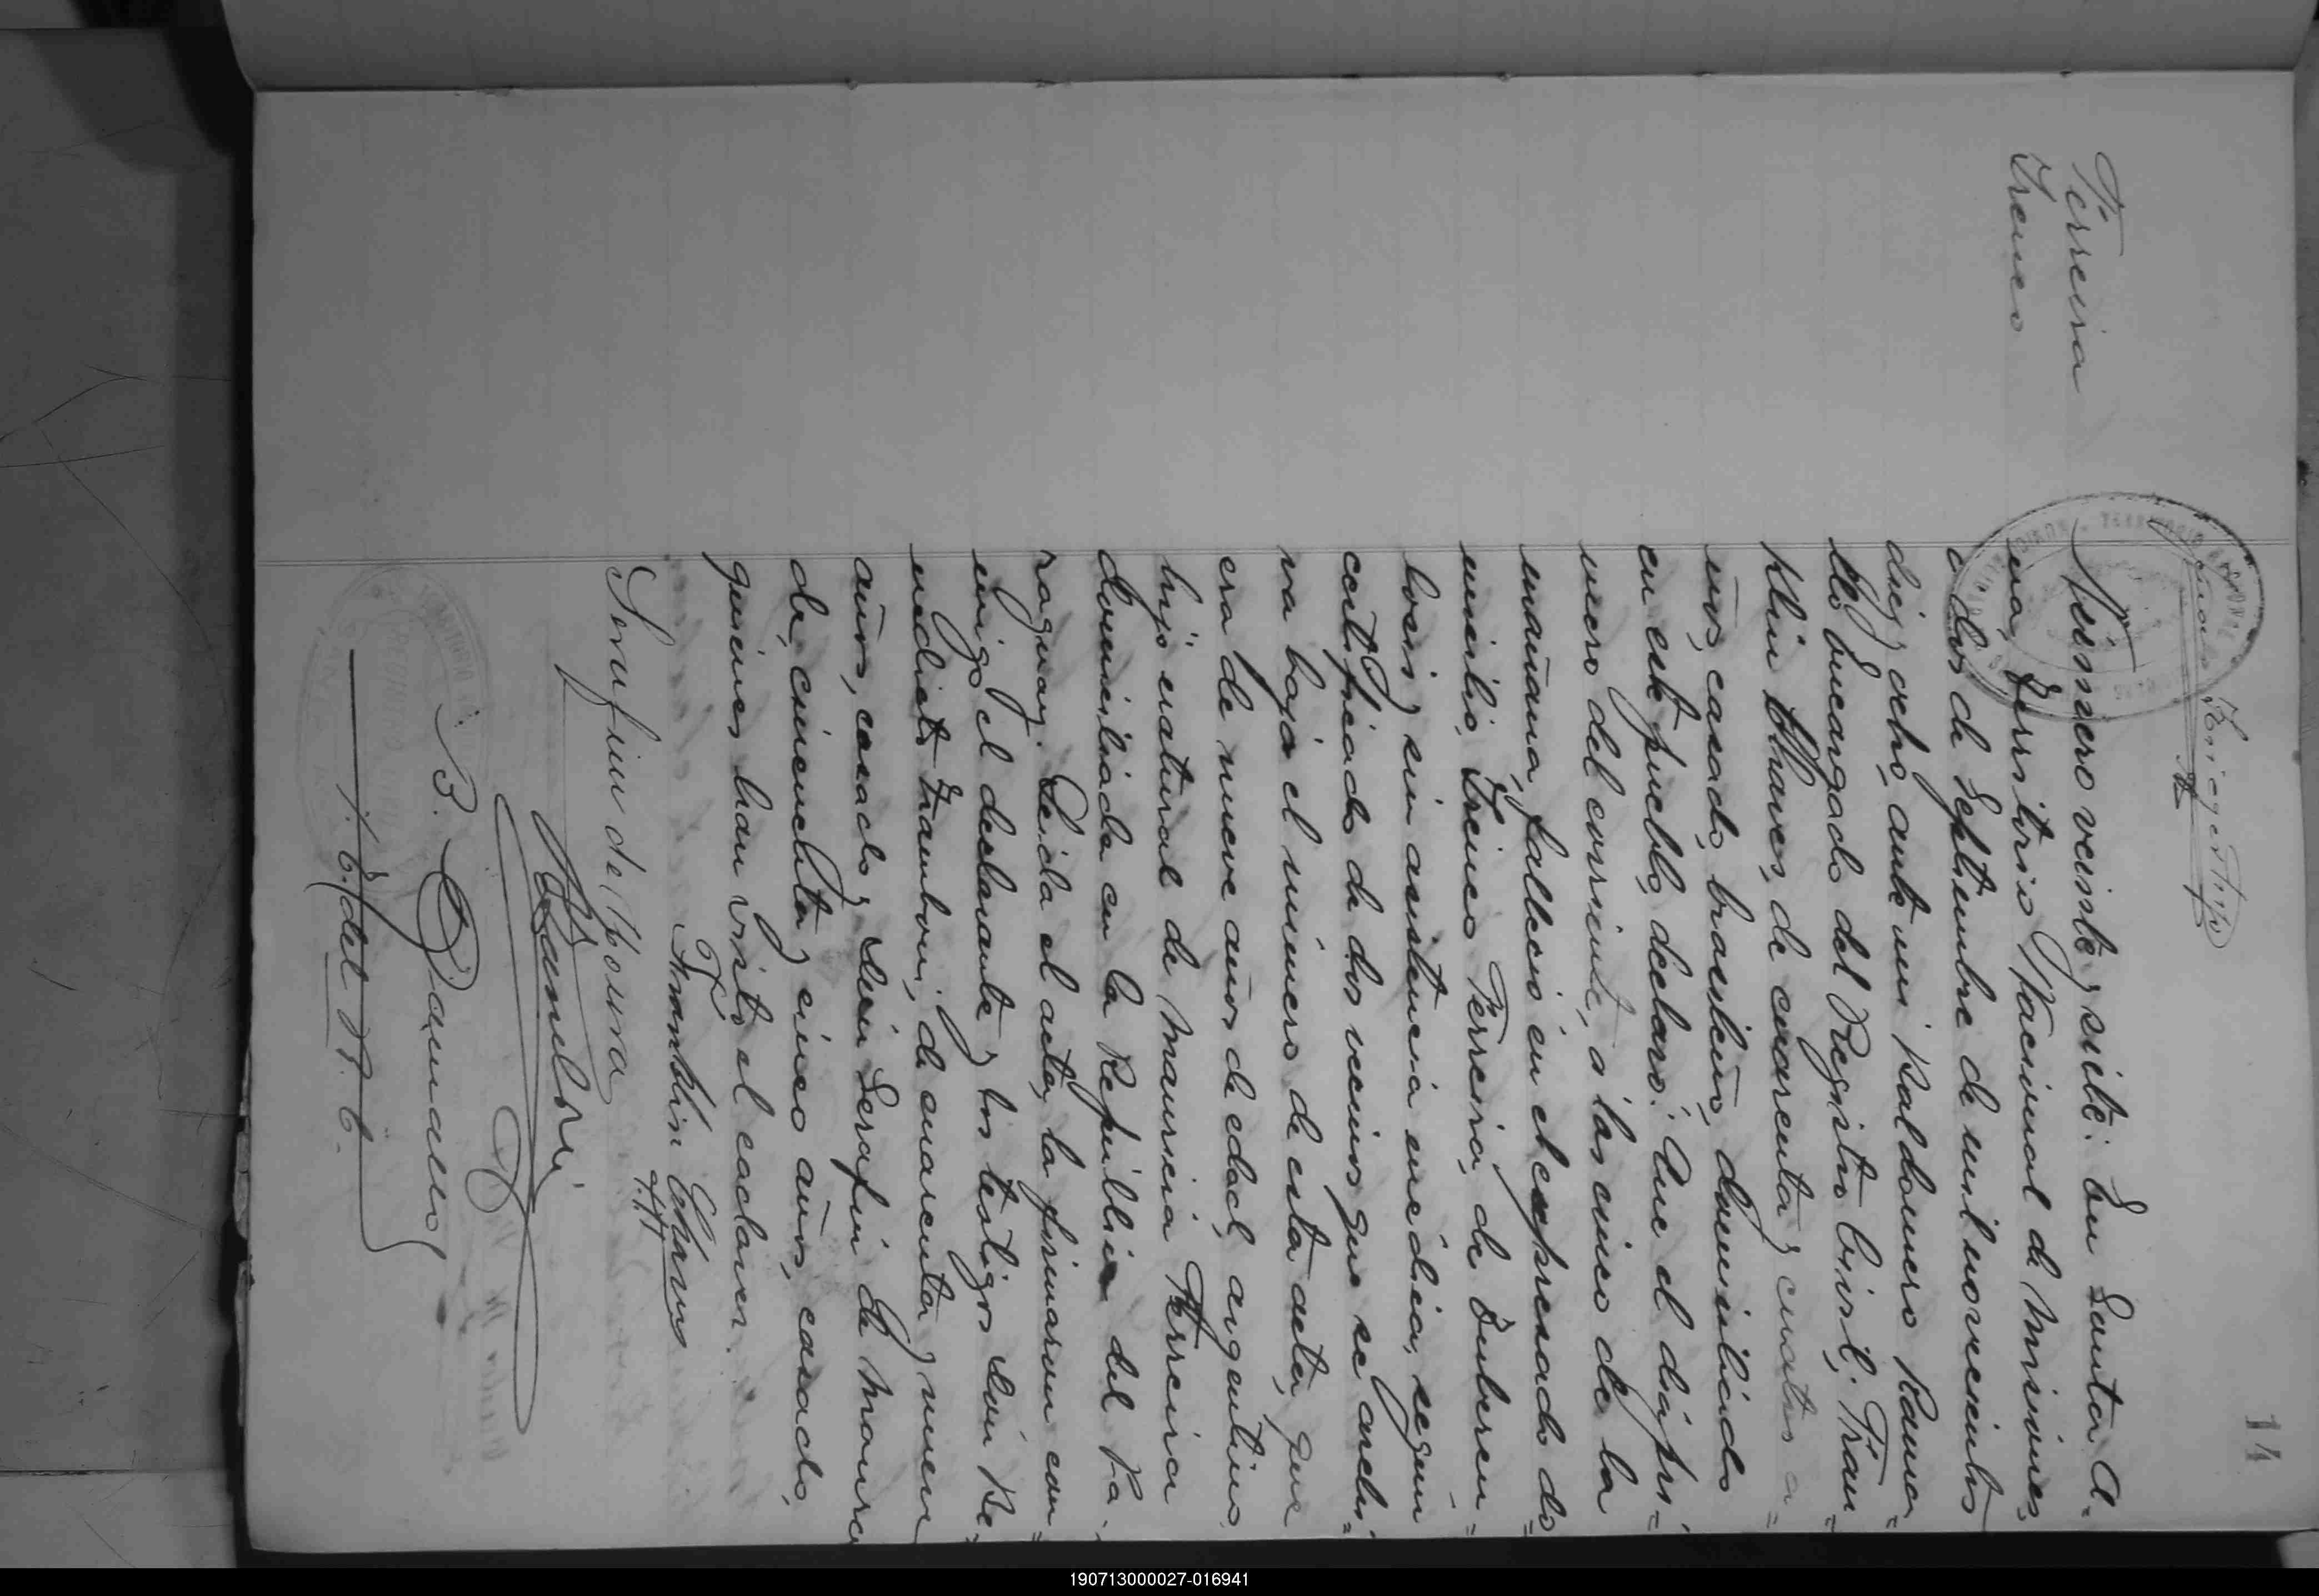 14
Ferreira
Ireneo
Número veinte y siete: En Santa A-
na, Territorio Nacional de Misiones,
a dos de Septiembre de mil novecientos
diez y ocho, ante mi Baldomero Ramo=
Encargado del Registro Civil; Fran=
klin Chaves, de cuarenta y cuatro a=
ños, casado, brasileño, domiciliado
en este pueblo, declaró: Que el día pri=
mero del corriente, a las cinco de la
mañana, falleció en el expresado do=
micilio, Ireneo Ferreira, de
y sin asistencia médica, segun
certificado de dos vecinos que se archi=
va bajo el número de esta acta, que
era de nueve años de edad, argentino
hijo natural de Mauricia Ferreira
domiciliada en la República del Pa-
raguay. Leida el acta, la firmaron con=
migo el declarante y los testigos don Be=
nedicto Zamboni, de cuarenta y nueve
años, casado, y don Serafin de Moura
de, cincuenta y cinco años, casado,
quienes han visto el cadaver.
Franklin Chaves
Serafim de Moura
BZamboni
B.
J. E. del R. C.
190713000027-016941